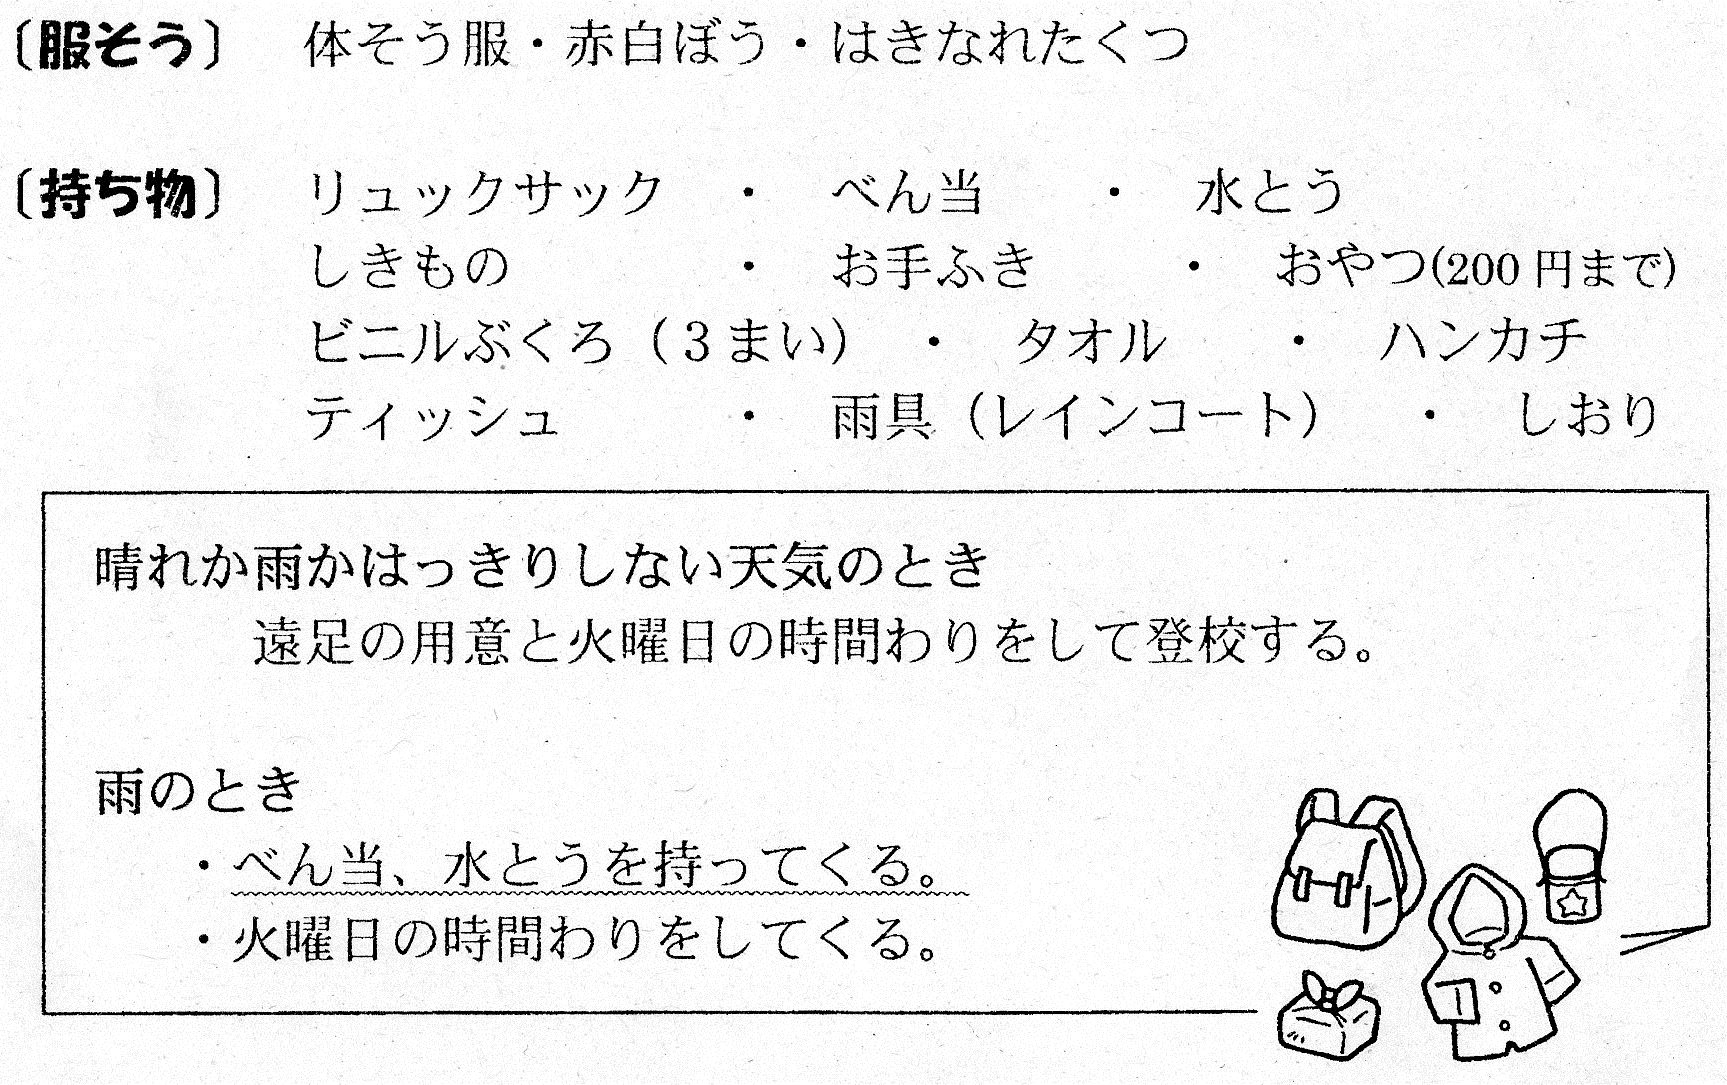 〔服そう〕 体そう服・赤白ぼう・はきなれたくつ
〔持ち物〕 リュックサック ・ べん当 ・ 水とう
しきもの ・ お手ふき ・ おやつ(200円まで)
ビニルぶくろ（3まい） ・ タオル ・ ハンカチ
ティッシュ ・ 雨具（レインコート） ・ しおり
晴れか雨かはっきりしない天気のとき
遠足の用意と火曜日の時間わりをして登校する。
雨のとき
・べん当、水とうを持ってくる。
・火曜日の時間わりをしてくる。